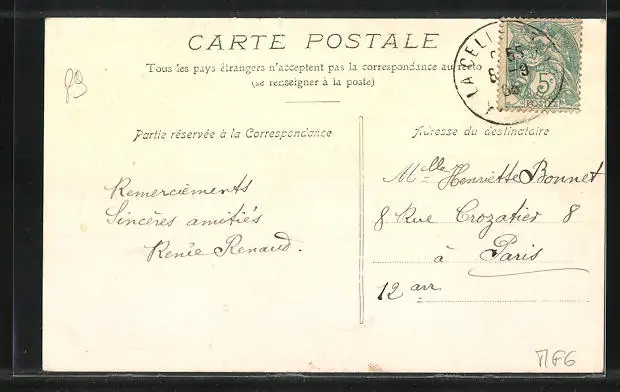 CARTE POSTALE
Tous les pays étrangers n'acceptent pas la correspondance au recto
(se renseigner à la poste)
Partie réservée à la Correspondance
Remerciements
Sincères amitiés
Renée Renaud.
Adresse du destinataire
Melle Henriette Bonnet
8 Rue Crozatier 8
à Paris
12 arr
5c
POSTES